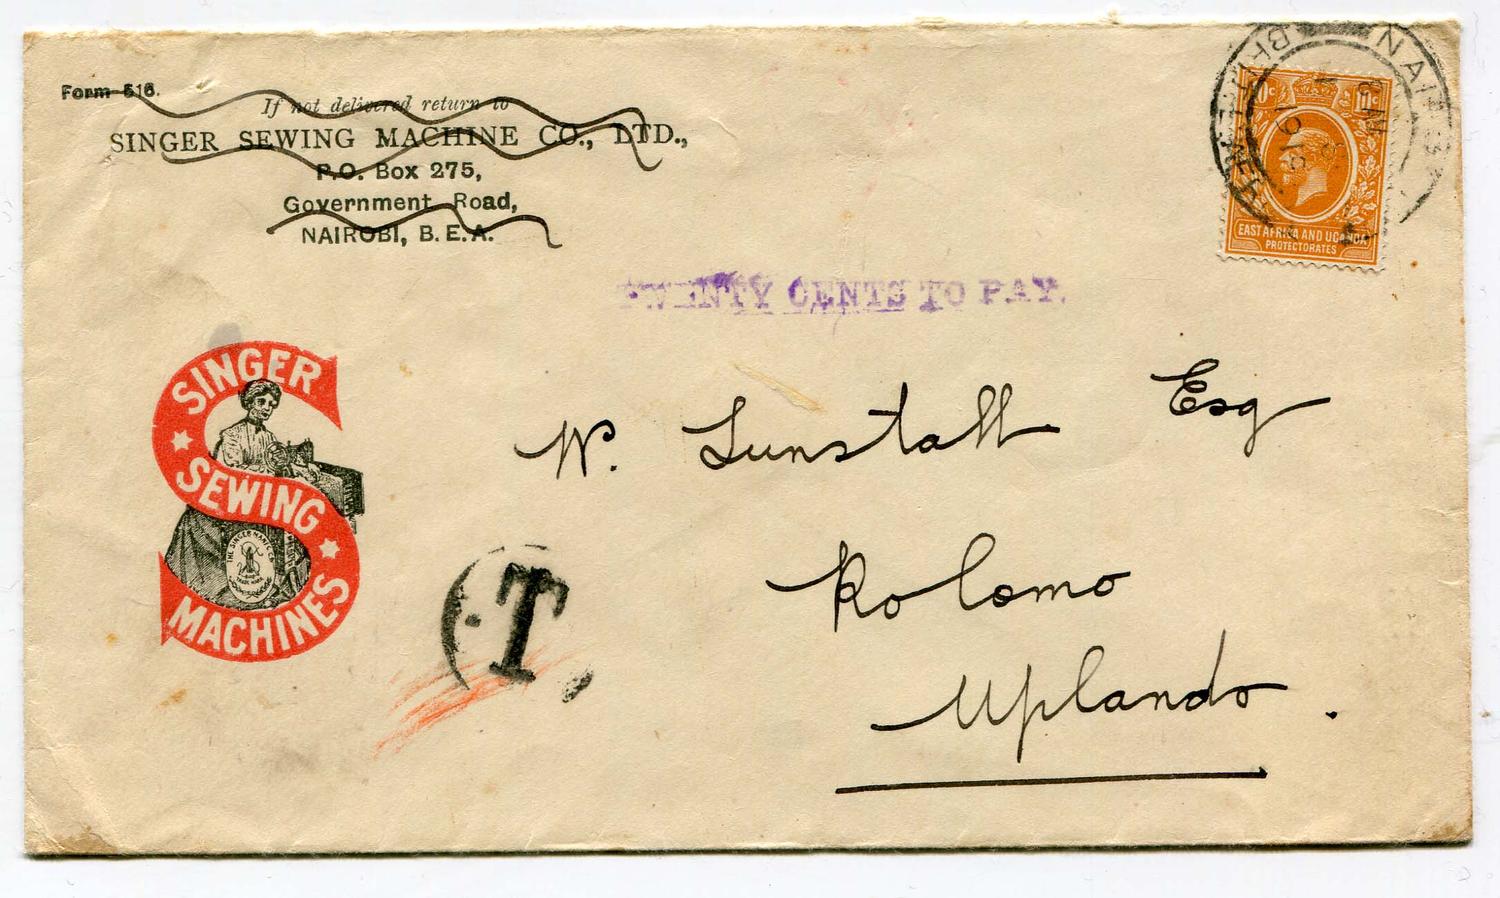 Form 516.
If not delivered return to
SINGER SEWING MACHINE CO., LTD.,
P.O. Box 275,
Government Road,
NAIROBI, B.E.A.
NAIROBI
10c 10c
EAST AFRICA AND UGANDA
PROTECTORATES
TWENTY CENTS TO PAY.
SINGER
SEWING
MACHINES
THE SINGER MANFG. CO.
TRADE MARK
T
W. Tunstall Esq
Kolomo
Uplands.